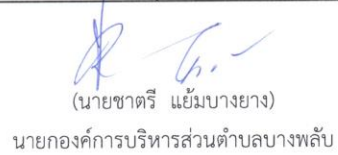 (นายชาตรี แย้มบางยาง)
นายกองค์การบริหารส่วนตำบลบางพลับ